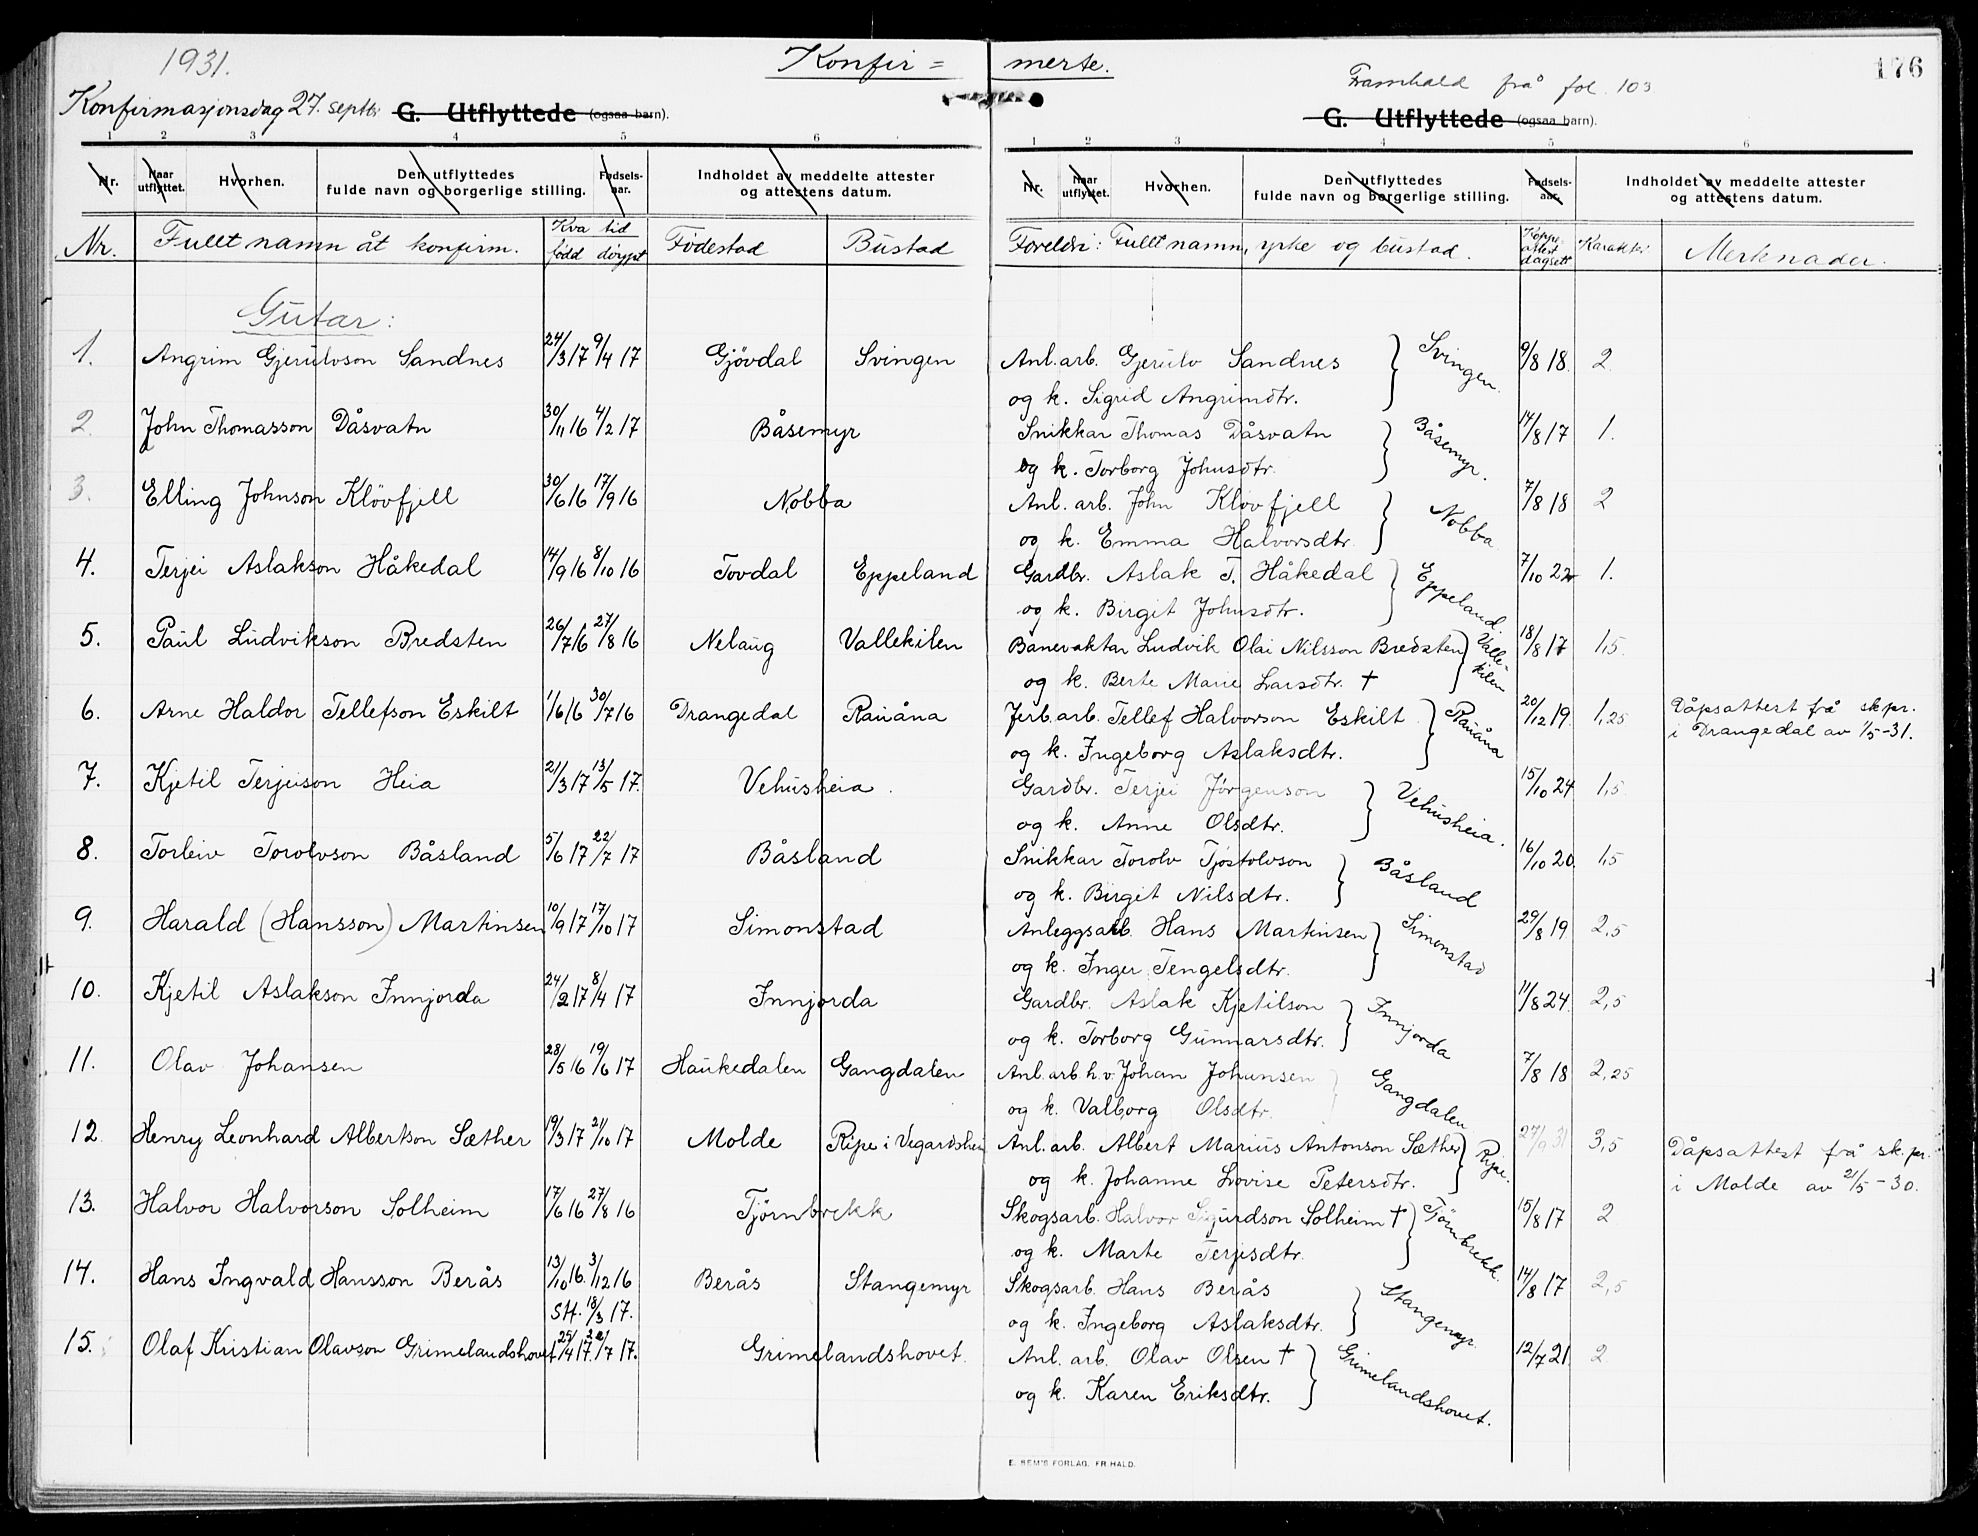 1931.
Konfir = merte.
Framhald frå fol. 103
176
Konfirmasjonsdag 27. septbr
G. Utflyttede (ogsaa barn).
G. Utflyttede (ogsaa barn).
1 2 3 4 5 6
1 2 3 4 5 6
Nr. Naar utflyttet. Hvorhen. Den utflyttedes fulde navn og borgerlige stilling. Fødsels-aar. Indholdet av meddelte attester og attestens datum.
Nr. Naar utflyttet. Hvorhen. Den utflyttedes fulde navn og borgerlige stilling. Fødsels-aar. Indholdet av meddelte attester og attestens datum.
Nr. Fullt namn åt konfirm. Kva tid fødd døypt Fødestad Bustad Foreldri: Fullt namn, yrke og bustad. Kopp. attest dagsett Karakter Merknader.
Gutar:
1. Angrim Gjerulvson Sandnes 24/3 17 9/4 17 Gjövdal Svingen Anl. arb. Gjerulv Sandnes } Svingen. 9/8 18. 2.
og k. Sigrid Angrimdtr.
2. John Thomasson Dåsvatn 30/11 16 4/2 17 Båsemyr Snikkar Thomas Dåsvatn } Båsemyr. 14/8 17 1.
og k. Torborg Johnsdtr.
3. Elling Johnson Klövfjell 30/6 16 17/9 16 Nobba Anl. arb. John Klövfjell } Nobba 7/8 18 2
og k. Emma Halvorsdtr.
4. Terjei Aslakson Håkedal 14/9 16 8/10 16 Tovdal Eppeland Gardbr. Aslak T. Håkedal } Eppeland. 7/10 22 1.
og k. Birgit Johnsdtr.
5. Paul Ludvikson Bredsten 26/7 16 27/8 16 Nelaug Vallekilen Banevaktar Ludvik Olai Nilsson Bredsten } Vallekilen 18/8 17 1,5.
og k. Berte Marie Larsdtr. †
6. Arne Haldor Tellefson Eskilt 1/6 16 30/7 16 Drangedal Rauåna Jerb. arb. Tellef Halvorson Eskilt } Rauåna 20/12 19. 1,25 Dåpsattest frå skpr.
og k. Ingeborg Aslaksdtr. i Drangedal av 1/5-31.
7. Kjetil Terjeison Heia 21/3 17 13/5 17. Vehusheia. Gardbr. Terjei Jørgenson } Vehusheia. 15/10 24 1,5.
og k. Anne Olsdtr.
8. Torleiv Torolvson Båsland 5/6 17 22/7 17 Båsland Snikkar Torolv Tjøstolvson } Båsland 16/10 20. 1,5
og k. Birgit Nilsdtr.
9. Harald (Hansson) Martinsen 10/9 17 17/10 17 Simonstad Anleggsarb. Hans Martinsen } Simonstad 29/8 19 2,5
og k. Inger Tengelsdtr.
10. Kjetil Aslakson Innjorda 24/2 17 8/4 17 Innjorda Gardbr. Aslak Kjetilson } Innjorda 11/8 24. 2,5
og k. Torborg Gunnarsdtr.
11. Olav Johansen 28/5 16 19/6 17 Haukedalen Gangdalen Anl. arb. h.v. Johan Johansen } Gangdalen 7/8 18 2,25
og k. Valborg Olsdtr.
12. Henry Leonhard Albertson Sæther 19/3 17 21/10 17 Molde Ripe i Vegårdshei Anl. arb. Albert Marius Antonson Sæther } Ripe. 27/9 31 3,5 Dåpsattest frå sk.pr.
og k. Johanne Lovise Petersdtr. i Molde av 21/5-30.
13. Halvor Halvorson Solheim 17/6 16 27/8 16 Tjörnbrekk Skogsarb. Halvor Sigurdson Solheim † } Tjörnbrekk. 15/8 17 2
og k. Marte Terjesdtr.
14. Hans Ingvald Hansson Berås 13/10 16. 3/12 16 Berås Stangemyr Skogsarb. Hans Berås } Stangemyr. 14/8 17 2,5
St. 18/3 17. og k. Ingeborg Aslaksdtr.
15. Olaf Kristian Olavson Grimelandshovet 25/4 17. 22/7 17. Grimelandshovet. Anl. arb. Olav Olsen † } Grimelandshovet. 12/7 21. 2
og k. Karen Eriksdtr.
E. SEM'S FORLAG. FR.HALD.